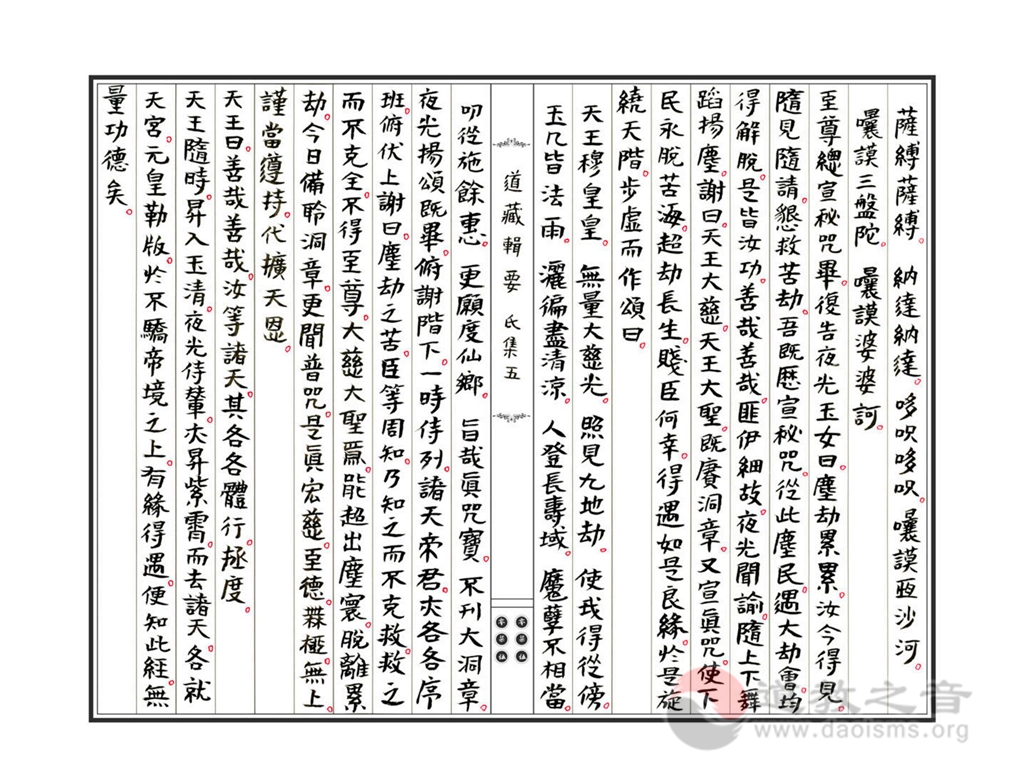 薩縛薩縛。納達納達。哆呎哆呎。嚷謨啞沙河。
嚷謨三盤陀。嚷謨婆婆訶。
至尊總宣秘咒畢。復告夜光玉女曰。塵劫累累。汝今得見。
隨見隨請。懇救苦劫。吾既歷宣秘咒。從此塵民。遇大劫會。均
得解脫。是皆汝功。善哉善哉。匪伊細故。夜光聞諭。隨上下舞
蹈揚塵。謝曰。天王大慈。天王大聖。既賡洞章。又宣眞咒。使下
民永脫苦海。超劫長生。賤臣何幸。得遇如是良緣。於是旋
繞天階。步虛而作頌曰。
天王穆皇皇。無量大慈光。照見九地劫。使我得從傍。
玉几皆法雨。灑徧盡清涼。人登長壽域。魔孽不相當。
道藏輯要 氐集五
叨從施餘惠。更願度仙鄉。旨哉眞咒寶。不刊大洞章。
夜光揚頌既畢。俯謝階下。一時侍列。諸天帝君。亦各各序
班。俯伏上謝曰。塵劫之苦。臣等周知。乃知之而不克救。救之
而不克全。不得至尊。大慈大聖。焉能超出塵寰。脫離累
劫。今日備聆洞章。更聞普咒。是眞宏慈。至德無極。無上。
謹當遵持。代擴天恩。
天王曰。善哉善哉。汝等諸天。其各各體行。拯度。
天王隨時。昇入玉清。夜光侍輦。亦昇紫霄。而去諸天。各就
天宮。元皇勒版。於不驕帝境之上。有緣得遇。便知此經。無
量功德矣。
道教之音
www.daoisms.org